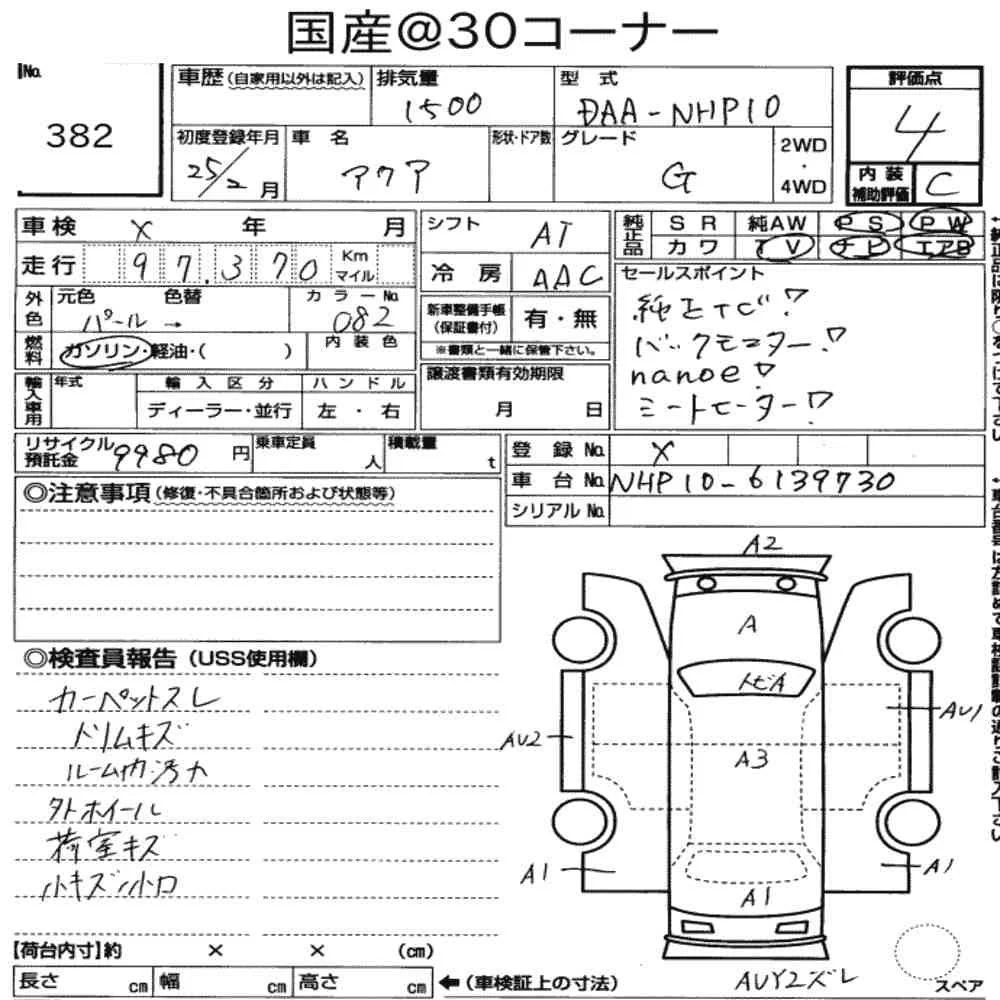 国産@30コーナー
No.
382
車歴(自家用以外は記入)
排気量
1500
型 式
DAA-NHP10
評価点
4
初度登録年月
25/2月
車 名
アクア
形状・ドア数
グレード
G
2WD
・
4WD
内 装
補助評価
C
車検 X 年 月
シフト
AT
純正品
SR 純AW PS PW
カワ TV ナビ エアB
走行 97,370
Km
マイル
冷 房
AAC
セールスポイント
純正TV!
バックモニター!
nanoe!
ミートモーター!
外色
元色 色替
パール →
カラーNo.
082
新車整備手帳
(保証書付)
有・無
※書類と一緒に保管下さい。
燃料
ガソリン・軽油・( )
内 装 色
譲渡書類有効期限
月 日
輸入車用
年式
輸 入 区 分
ハ ン ド ル
ディーラー・並行
左 ・ 右
リサイクル
預託金
9980円
乗車定員
人
積載量
t
登 録 No. X
車 台 No. NHP10-6139730
シリアル No.
◎注意事項(修復・不具合箇所および状態等)
◎検査員報告(USS使用欄)
カーペットスレ
ドリムキズ
ルーム内汚れ
外ホイール
荷室キズ
小キズ小凹
A2
A
トビA
AU1
AU2
A3
A1
A1
A1
AUY2ズレ
スペア
【荷台内寸】約 × × (cm)
長さ cm 幅 cm 高さ cm
←(車検証上の寸法)